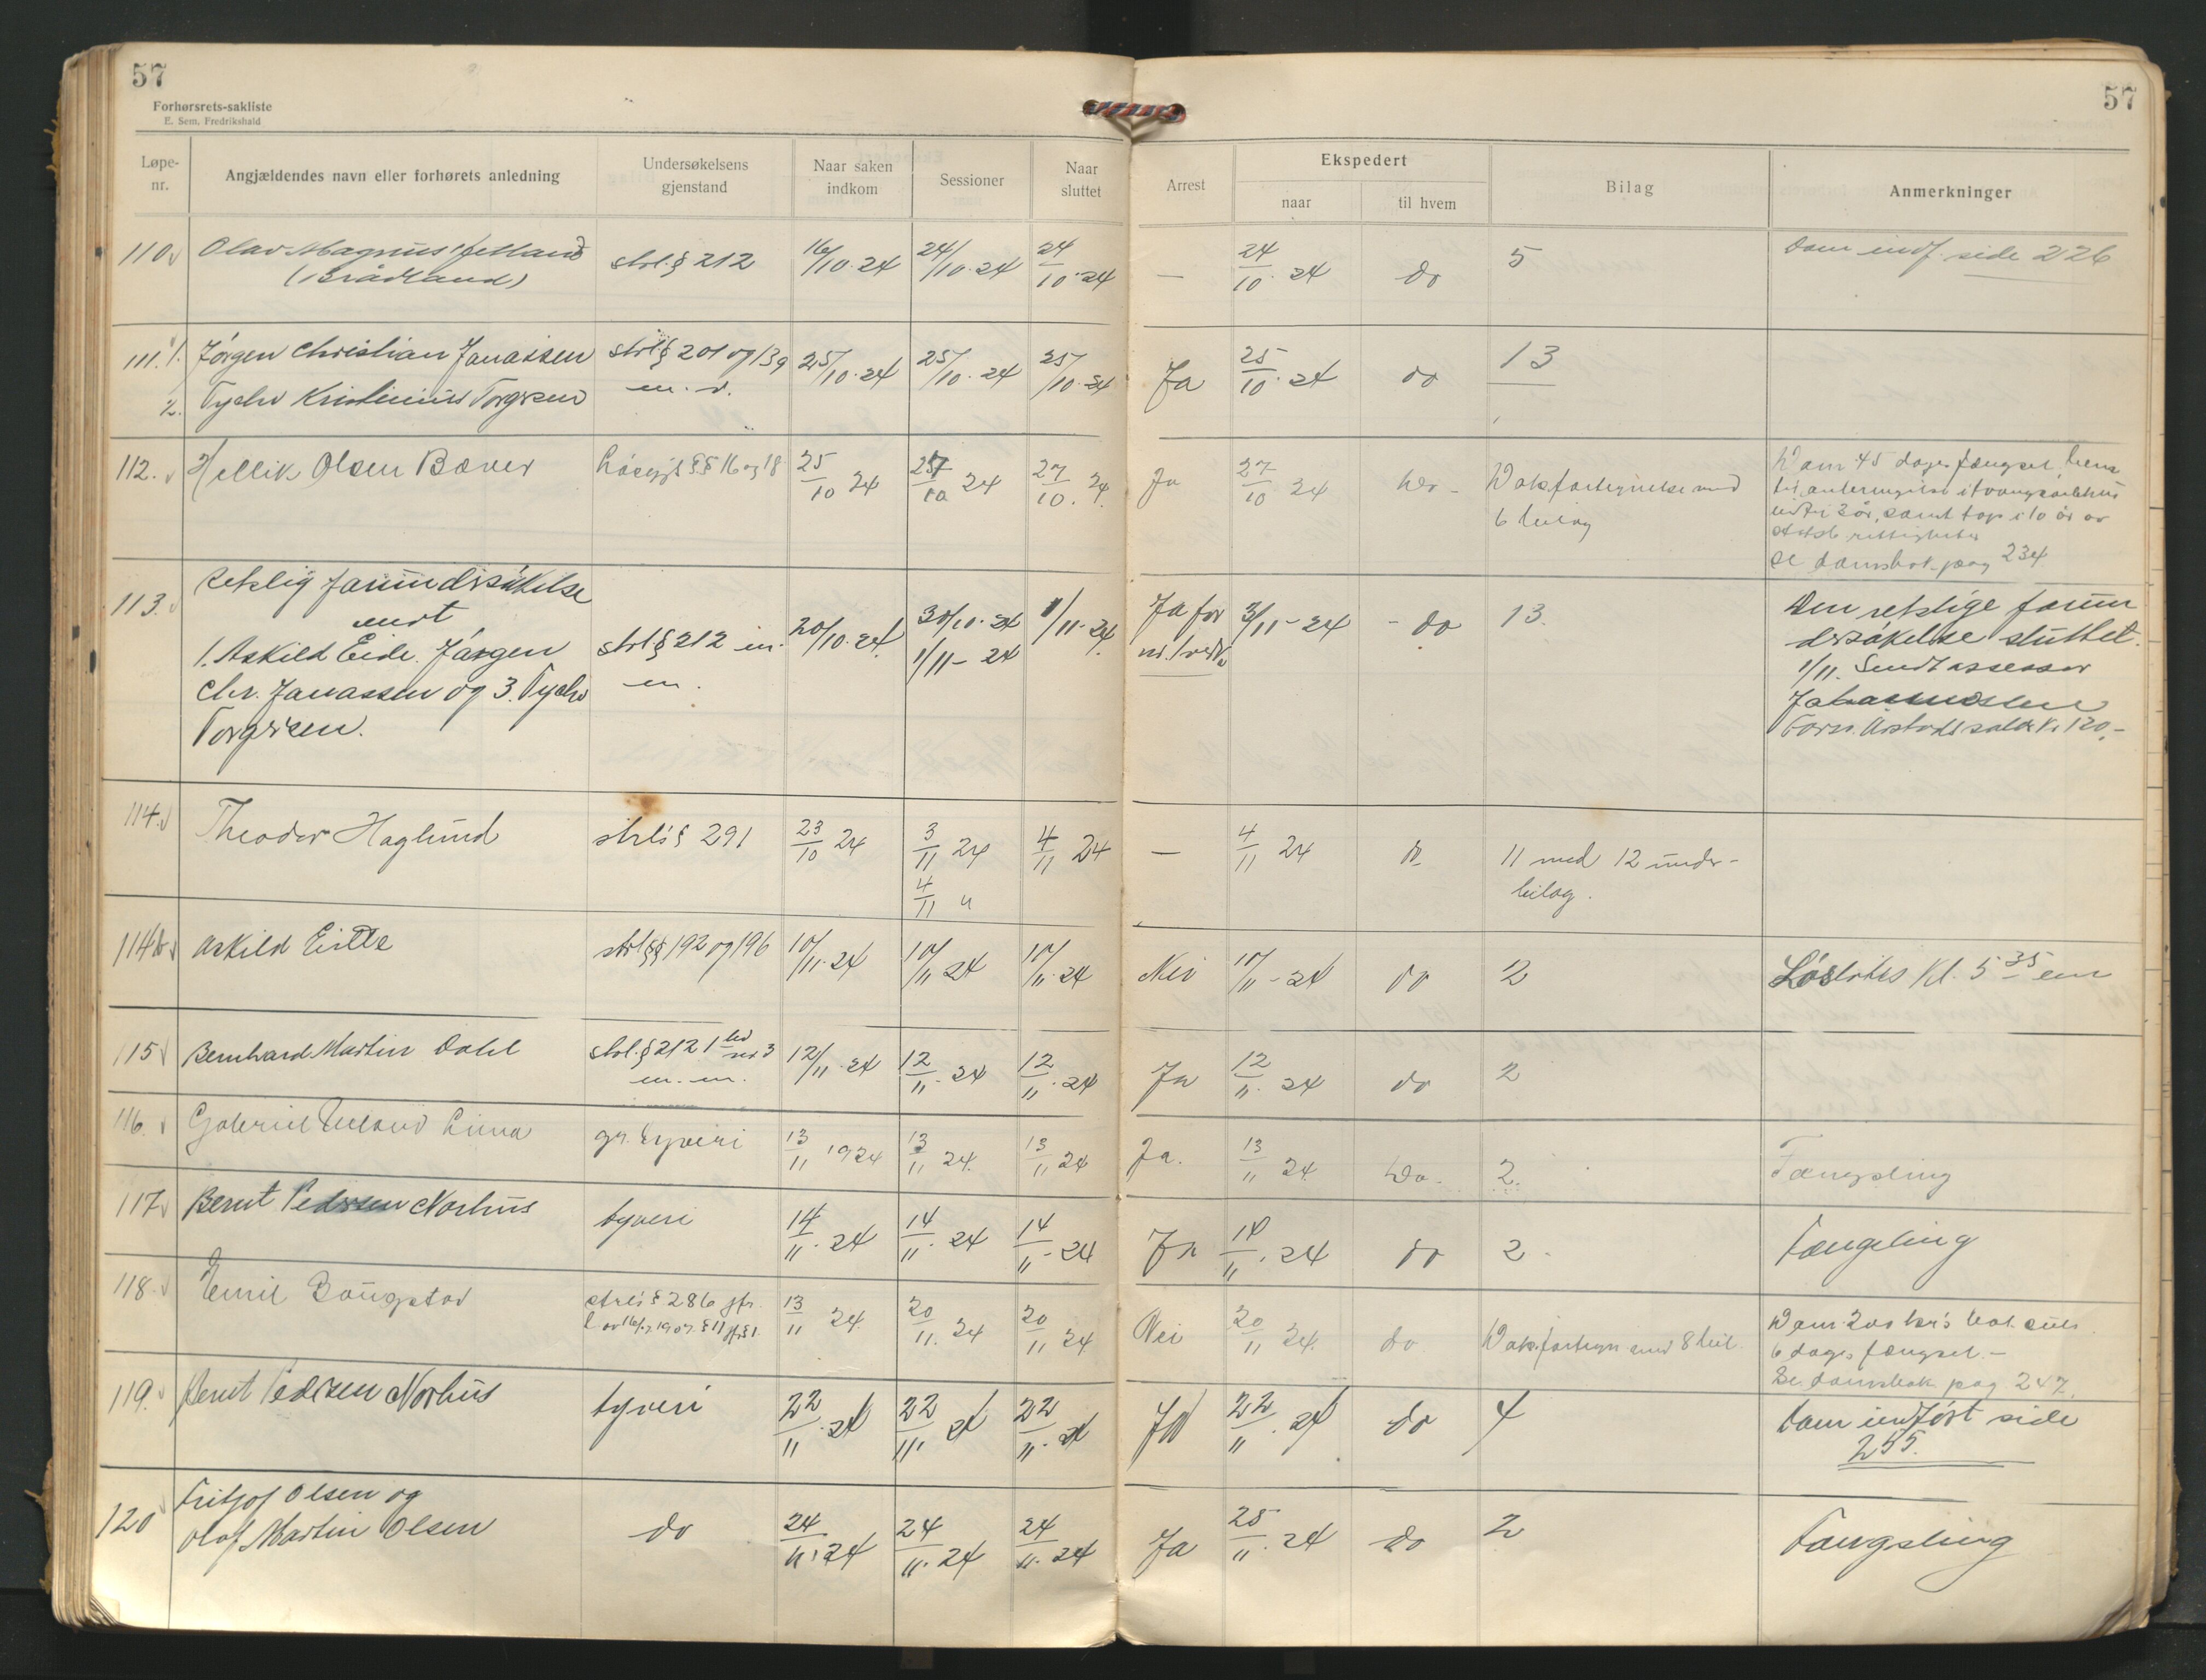 57
57
Forhørsrets-sakliste
E. Sem. Fredrikshald
Løpe-nr.
Angjældendes navn eller forhørets anledning
Undersøkelsens gjenstand
Naar saken indkom
Sessioner
Naar sluttet
Arrest
Ekspedert
naar
til hvem
Bilag
Anmerkninger
110. Olav Magnus strl. § 212 16/10.24 24/10.24 24/10.24 — 24/10.24 do 5 Dom indf. side 226
111. 1. Jørgen Christian Jonassen strl § 201 og 139 25/10.24 25/10.24 25/10.24 Ja 25/10.24 do 13
2. Tycho Kristinius Torgersen m. v.
112. Hellik Olsen Bæver §§ 16 og 18 25/10 24 27/10 24 27/10.24. Ja 27/10 24 do - Dokfortegnelse med
6 bilag
Dom 45 dages fængsel
samt tap i 10 år av
rettigheter
se domsbok pag 234
113. Retslig forundersøkelse
mot
1. Askild Eide. Jørgen
Chr. Jonassen og 3. Tycho
Torgersen.
strl § 212 m.
m.
20/10.24. 30/10.24
1/11-24
1/11.24. Ja for
nr. 1
3/11-24 - do 13.
Den retslige forun
dersøkelse sluttet.
1/11. Sendt assessor
Johannesen
Kr 120.-
114. Theodor Haglund strls § 291 23/10 24 3/11 24
4/11 "
4/11 24 — 4/11 24 do 11 med 12 under-
bilag.
114b Askild Eide strl §§ 192 og 196 10/11.24 10/11 24 10/11.24 Nei 10/11-24 do 2 Løslates Kl. 5 35 em
115 Bernhard Martin Dahl strl. § 212 1 led nr 3
m. m.
12/11.24 12/11.24 12/11.24 Ja 12/11.24 do 2
116. Gabriel Ueland Lima gr. tyveri 13/11 1924 13/11 24. 13/11 24 Ja. 13/11 24. Do. 2. Fængsling
117 Bernt Pedersen Norhus tyveri 14/11.24 14/11.24 14/11-24 Ja 14/11.24 do 2 - Fængsling
118. Emil Baugstad strls § 286 jfr.
l av 1907. § 11 jfr § 1.
13/11 24. 20/11. 24 20/11 24 Nei 20/11 24. do Dokfortegn. med 8 bil.
Dom: 200 kr's bot
6 dages fængsel. -
Se domsbok pag 247.
119. Bernt Pedersen Norhus tyveri 22/11.24 22/11. 24 22/11.24 Ja 22/11.24 do 4 Dom indført side
255.
120 Fritjof Olsen og
Olaf Martin Olsen do 24/11.24 24/11.24 24/11.24 Ja 25/11.24 do 2 Fængsling